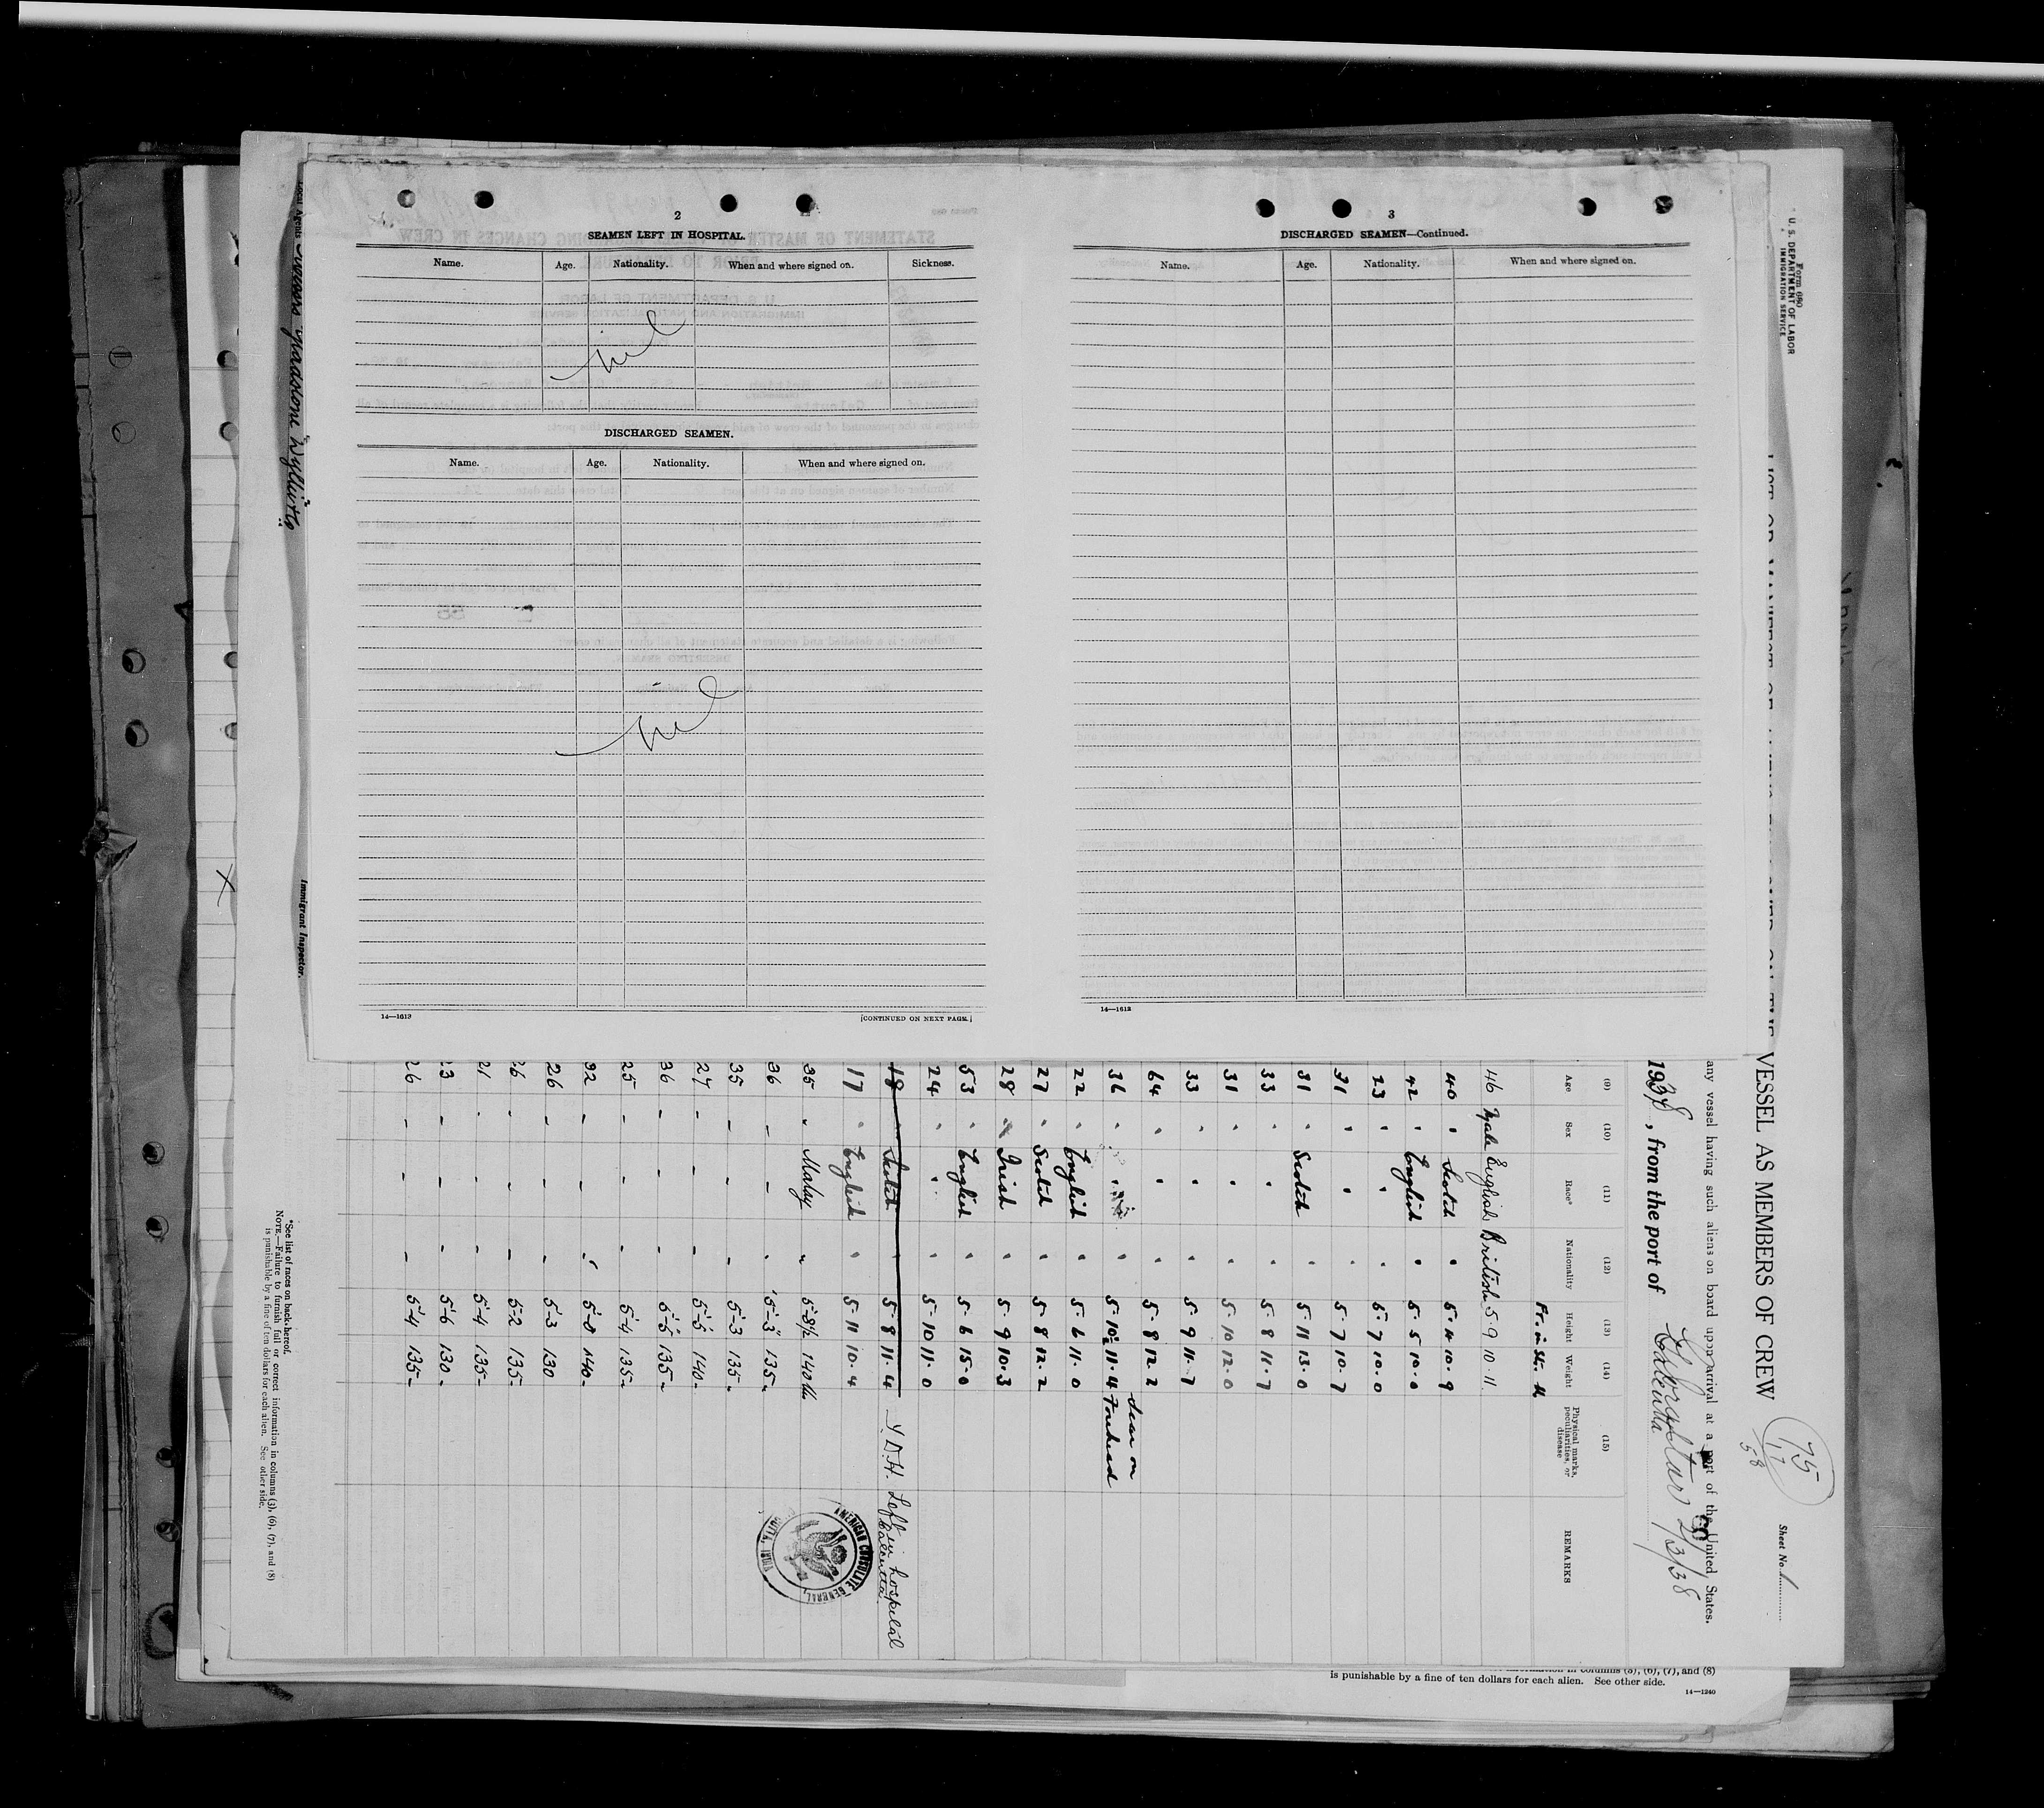 2
SEAMEN LEFT IN HOSPITAL.
Name. Age. Nationality. When and where signed on. Sickness.
nil
DISCHARGED SEAMEN.
Name. Age. Nationality. When and where signed on.
nil
14—1613
[CONTINUED ON NEXT PAGE.]
3
DISCHARGED SEAMEN—Continued.
Name. Age. Nationality. When and where signed on.
14—1613
Local Agents
Immigrant Inspector.
Form 680
U. S. DEPARTMENT OF LABOR
IMMIGRATION SERVICE
VESSEL AS MEMBERS OF CREW
75
17
58
Sheet No. 1
any vessel having such aliens on board upon arrival at a port of the United States.
1938, from the port of
Gibraltar 2/3/38
Calcutta
(9) (10) (11) (12) (13) (14) (15)
Age Sex Race* Nationality Height Weight Physical marks, peculiarities, or disease REMARKS
Ft. in St. lb
46 Male English British 5-9 10.11
40 " Scotch " 5-4 10.9
42 " English " 5-5 10.0
23 " " " 5-7 10.0
31 " " " 5-7 10.7
31 " Scotch " 5-11 13.0
33 " " " 5-8 11.7
31 " " " 5-10 12.0
33 " " " 5-9 11.7
64 " " " 5-8 12.2
36 " " " 5-10½ 11.4 Scar on Forehead
22 " English " 5-6 11.0
27 " Scotch " 5-8 12.2
28 " Irish " 5-9 10.3
53 " English " 5-6 15.0
24 " " " 5-10 11.0
18 " Scotch " 5-8 11.4 Left in hospital Calcutta
17 " English " 5-11 10.4
35 " Malay " 5-8½ 140 lb
36 - - " 5-3 135-
35 - - - 5-3 135-
27 - - - 5-5 140-
36 - - - 5-5 135-
25 - - - 5-4 135-
32 - - - 5-0 140-
26 - - - 5-3 130
26 - - - 5-2 135-
21 - - - 5-4 135-
23 - - - 5-6 130-
26 - - - 5-4 135-
AMERICAN CONSULATE GENERAL, CALCUTTA, INDIA
*See list of races on back hereof.
NOTE.—Failure to furnish full or correct information in columns (3), (6), (7), and (8)
is punishable by a fine of ten dollars for each alien. See other side.
is punishable by a fine of ten dollars for each alien. See other side.
14—1240